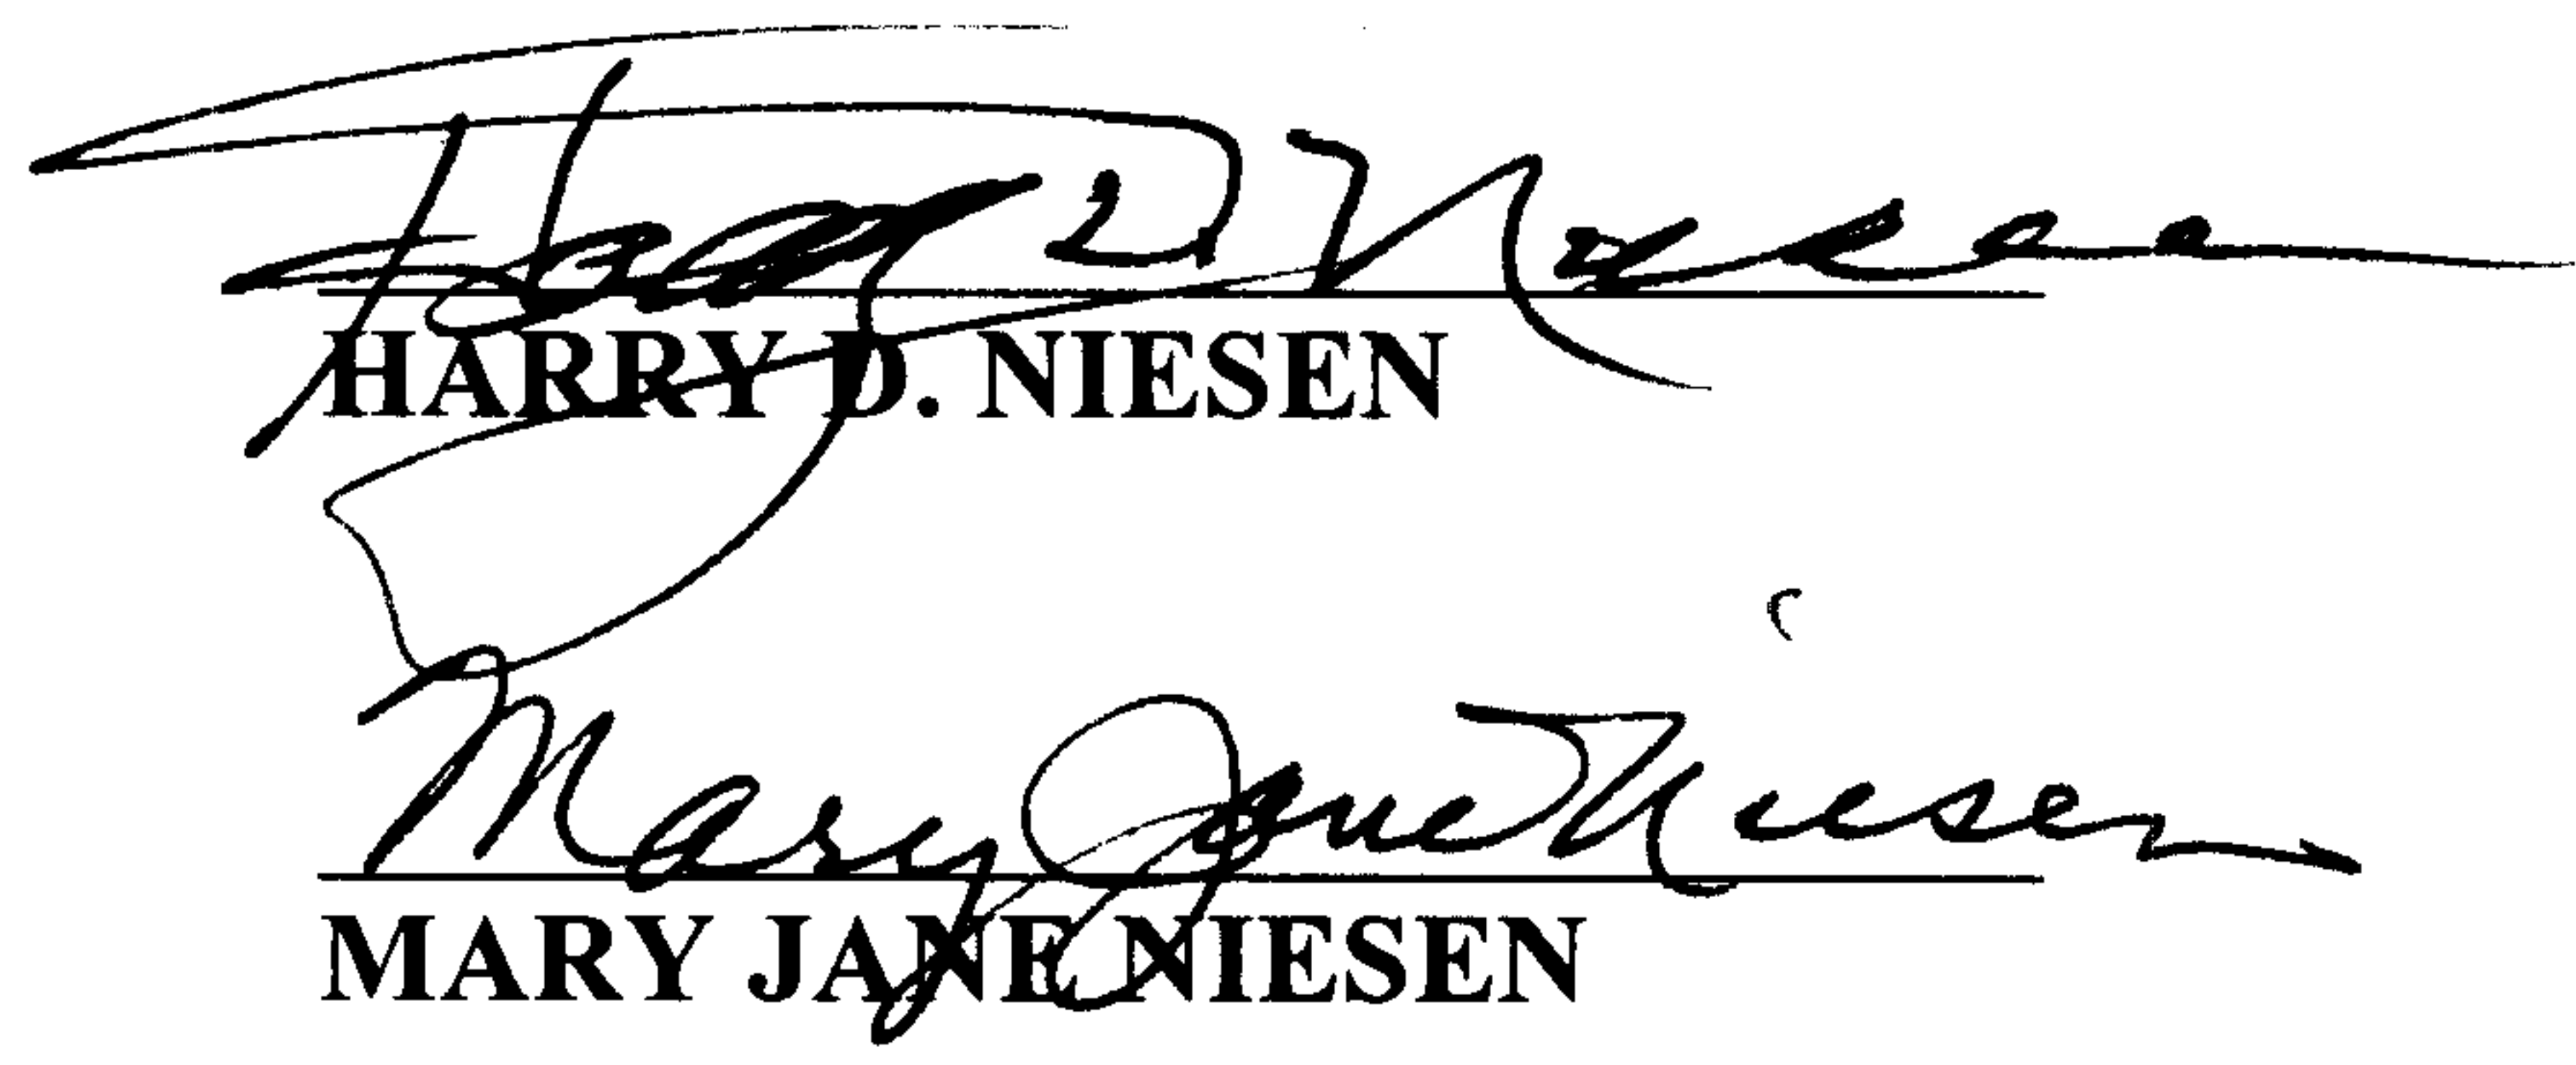 Harry D Niesen
HARRY D. NIESEN
Mary Jane Niesen
MARY JANE NIESEN